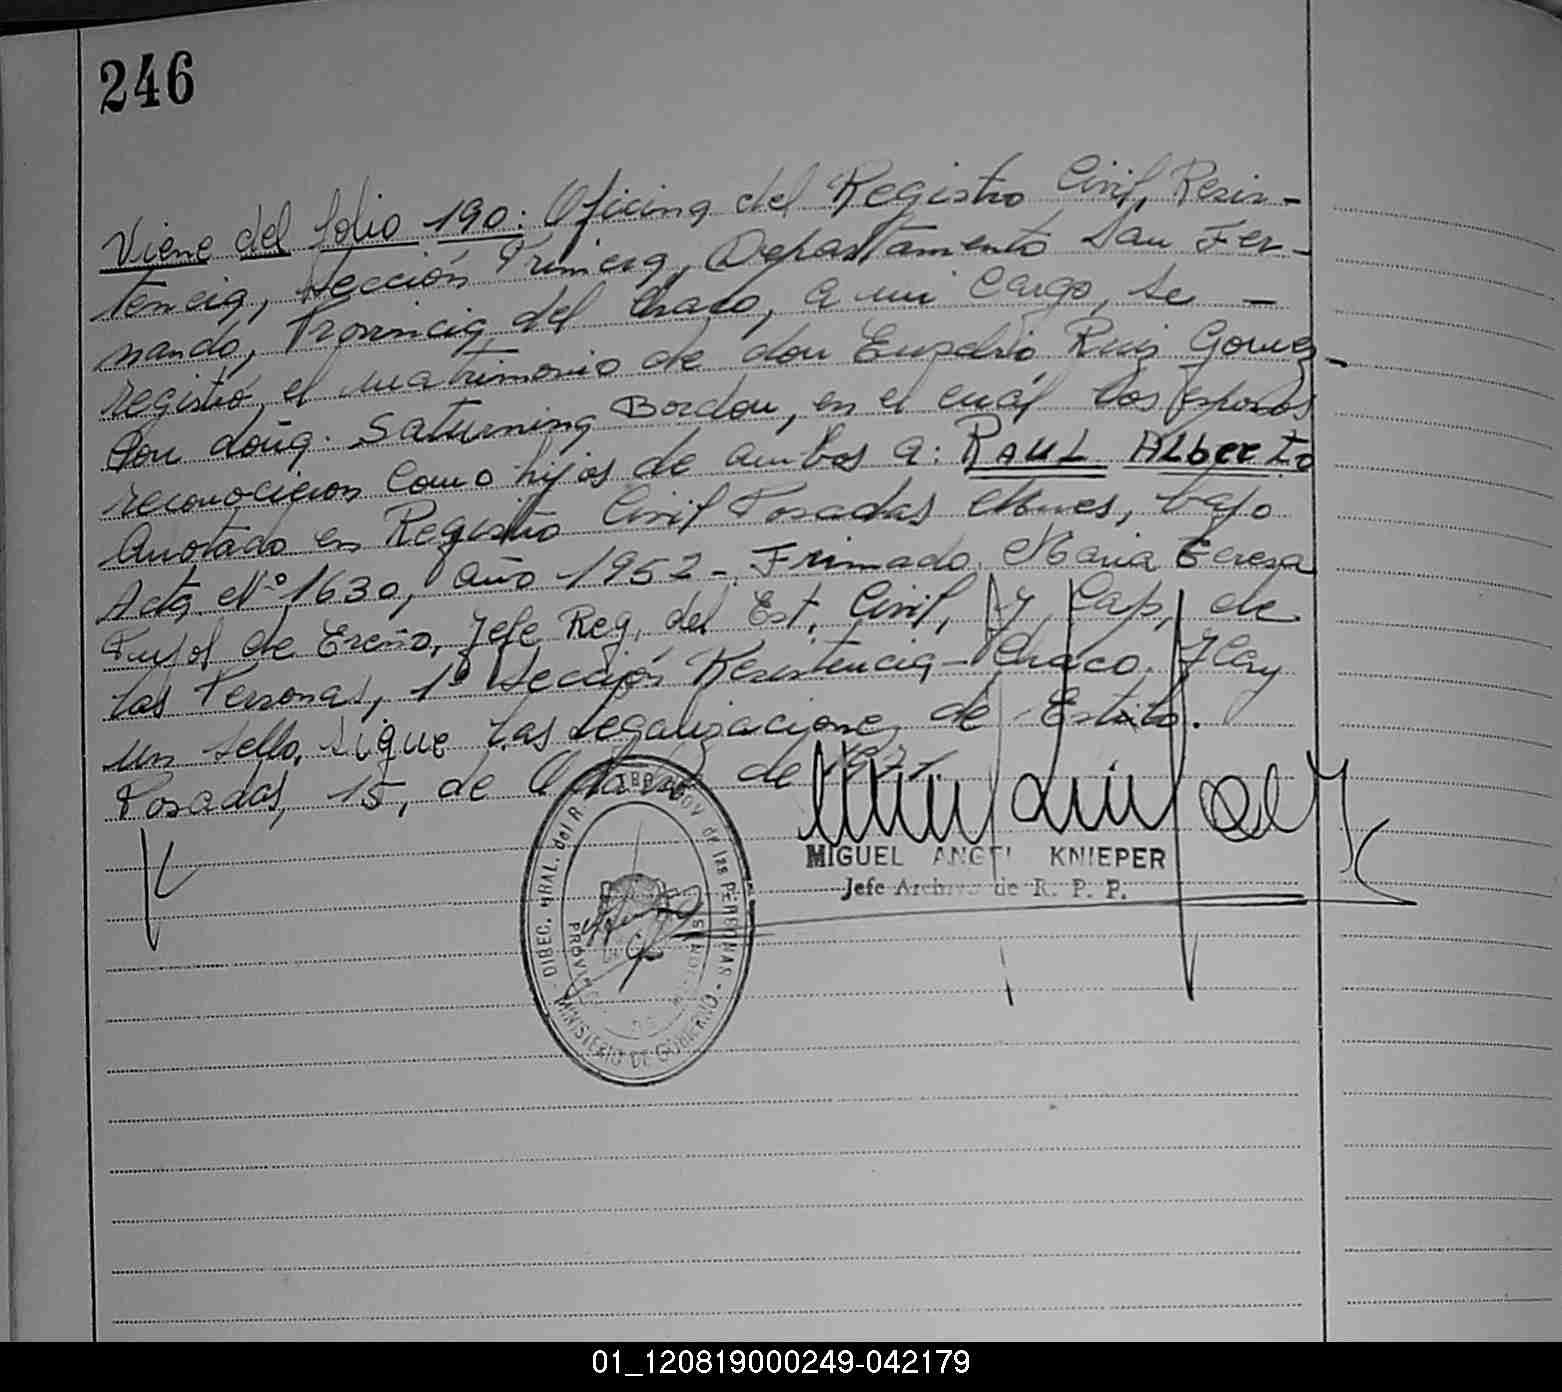 246
Viene del folio 190: Oficina del Registro Civil, Resis-
tencia, Sección Primera, Departamento San Fer-
nando, Provincia del Chaco, a mi cargo, se -
registró el matrimonio de don Euzebio Ruiz Gomez -
Con doña. Saturnina Bordon, en el cuál los esposos
reconocieron como hijos de ambos a: RAUL Alberto
Anotado en Registro Civil Posadas Mnes, bajo
Acta Nº 1630, año 1952 - Frimado Maria Teresa
Pujol de Ereño, Jefe Reg. del Est. Civil, y Cap. de
las Personas, 1º Sección Resistencia - Chaco. Hay
un sello. Sigue las legalizaciones de Estilo.
Posadas, 15, de de 1977
MIGUEL ANGEL KNIEPER
Jefe Archivo de R. P. P.
DIREC. GRAL. del R. de las PERSONAS - MINISTERIO DE GOBIERNO -
01_120819000249-042179